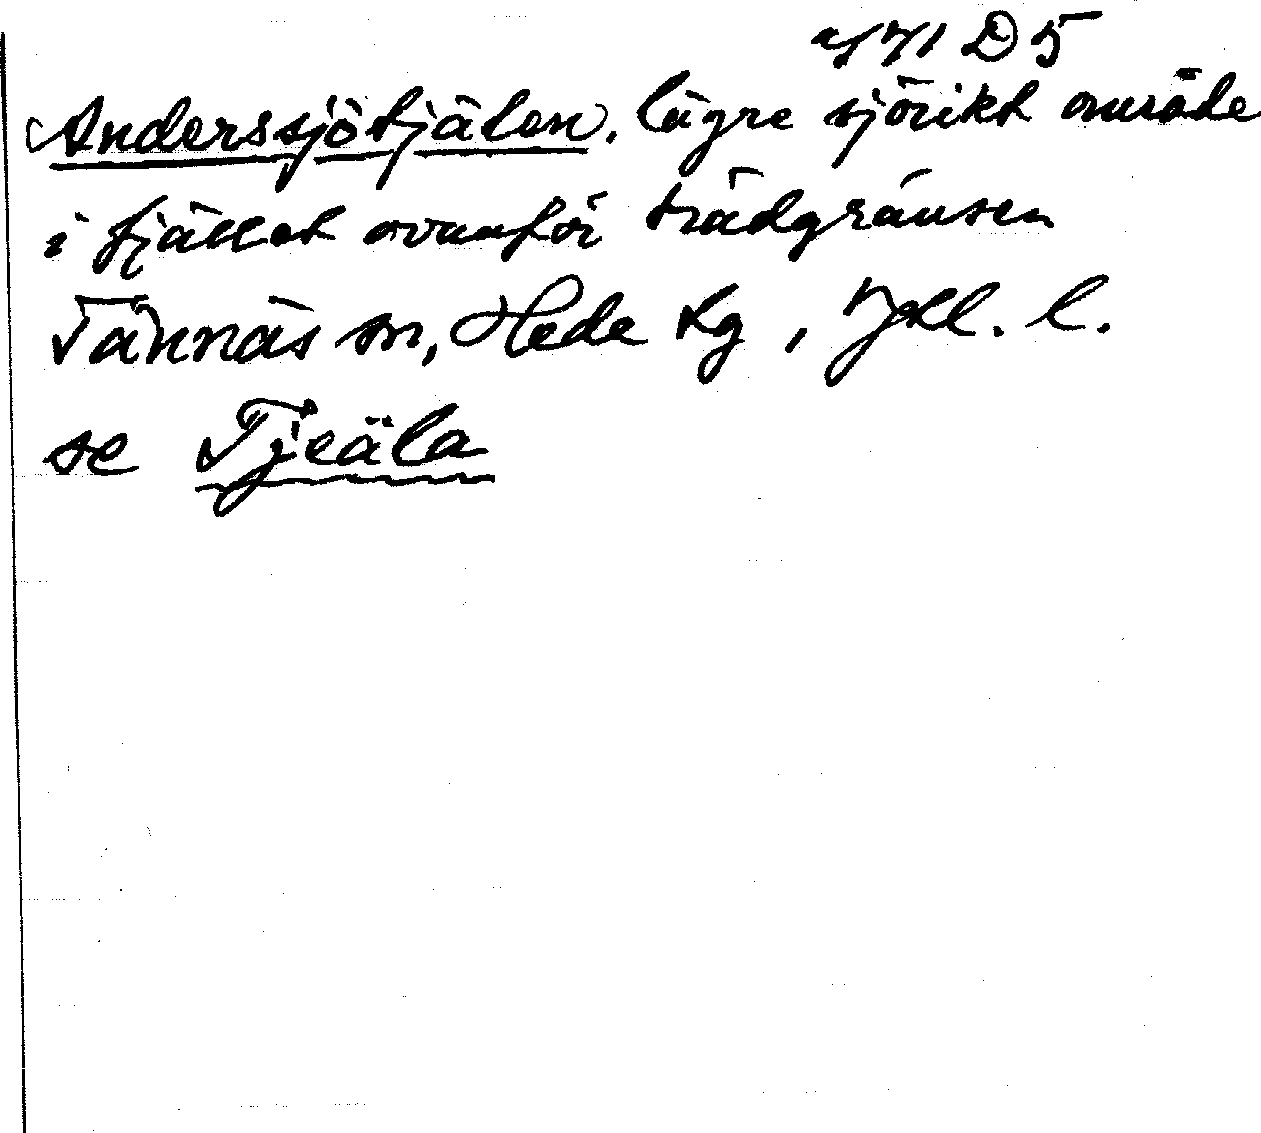 471 D5
Anderssjötjälen, lägre sjörikt område
i fjället ovanför trädgränsen
Tännäs sn, Hede tg, Jtl. l.
se Tjeäla